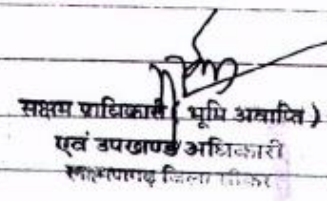 सक्षम प्राधिकारी ( भूमि अवाप्ति )
एवं उपखण्ड अधिकारी
जिला सीकर